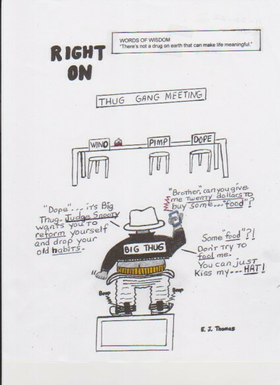 WORDS OF WISDOM
"There's not a drug on earth that can make life meaningful."
RIGHT
ON
THUG GANG MEETING
WINO
PIMP
DOPE
"Dope"...its Big
Thug. Judge Snooty
wants you to
reform yourself
and drop your
old habits.
"Brother," can you give
me Twenty dollars to
buy some..."food"?
BIG THUG
Some "food"?!
Don't try to
fool me.
You can just
Kiss my...HAT!
E.J. Thomas